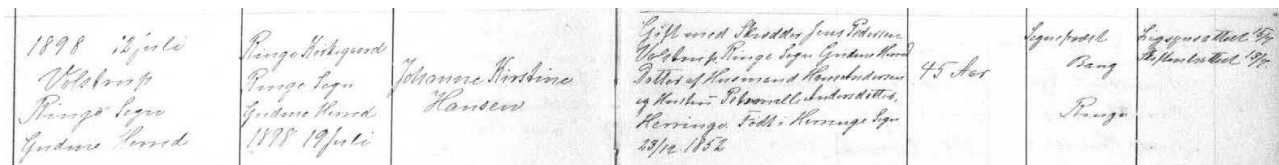 1898 12 juli
Volstrup
Ringe Sogn
Gudme Herred
Ringe Kirkegaard
Ringe Sogn
Gudme Herred
1898 19 juli
Johanne Kirstine
Hansen
Gift med Skrædder Jens Pedersen
Volstrup Ringe Sogn Gudme Herred
Datter af Husmand Hans Andersen
og Hustru Petronelle Andersdatter,
Herringe. Født i Herringe Sogn
23/12 1852
45 Aar
Sognepræst
Bang
Ringe